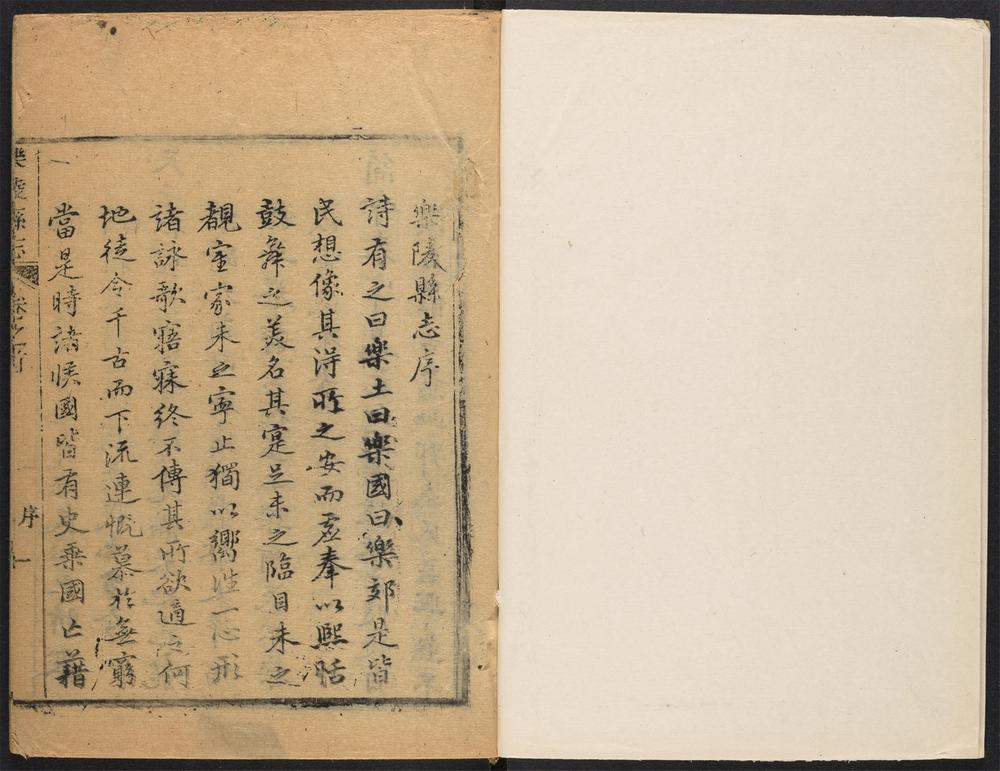 樂陵縣志序
詩有之曰樂土曰樂國曰樂郊是皆
民想像其淂所之安而虛奉以熈恬
鼓舞之美名其寔足未之臨目未之
覩室家未之寧止獨以嚮徃一心形
諸詠歌寤寐終不傳其所欲適之何
地徒令千古而下流連慨慕於無窮
當是時諸侯國皆有史乗國亡藉
樂陵縣志 序 一